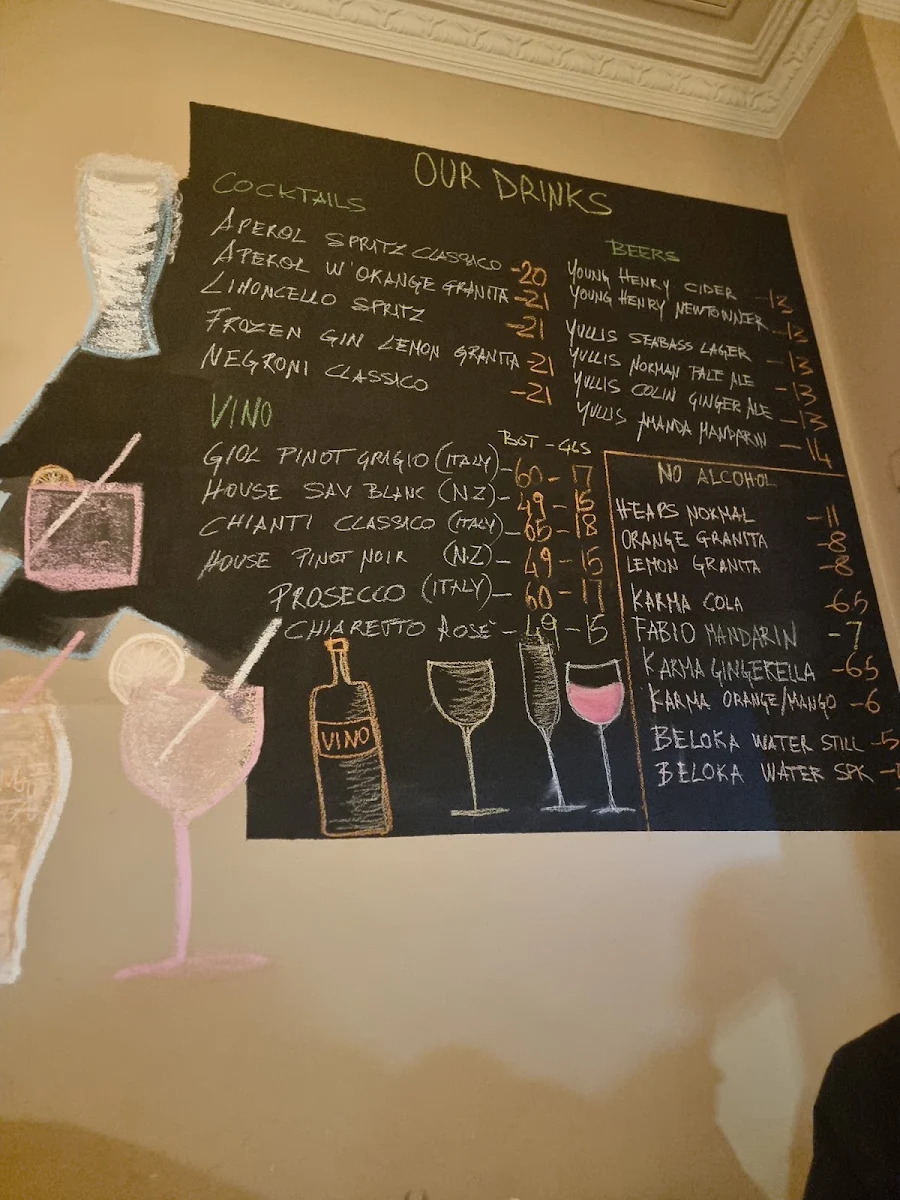 OUR DRINKS
COCKTAILS
APEROL SPRITZ CLASSICO -20
APEROL W'ORANGE GRANITA -21
LIMONCELLO SPRITZ -21
FROZEN GIN LEMON GRANITA -21
NEGRONI CLASSICO -21
VINO
BOT - GLS
GIOL PINOT GRIGIO (ITALY) - 60 - 17
HOUSE SAV BLANC (N.Z) - 49 - 15
CHIANTI CLASSICO (ITALY) - 65 - 18
HOUSE PINOT NOIR (N.Z) - 49 - 15
PROSECCO (ITALY) - 60 - 17
CHIARETTO ROSE' - 49 - 15
VINO
BEERS
YOUNG HENRY CIDER - 13
YOUNG HENRY NEWTOWNER - 13
YULLIS SEABASS LAGER - 13
YULLIS NORMAN PALE ALE - 13
YULLIS COLIN GINGER ALE - 13
YULLIS AMANDA MANDARIN - 14
NO ALCOHOL
HEAPS NORMAL - 11
ORANGE GRANITA - 8
LEMON GRANITA - 8
KARMA COLA - 6.5
FABIO MANDARIN - 7
KARMA GINGERELLA - 6.5
KARMA ORANGE/MANGO - 6
BELOKA WATER STILL - 5
BELOKA WATER SPK -